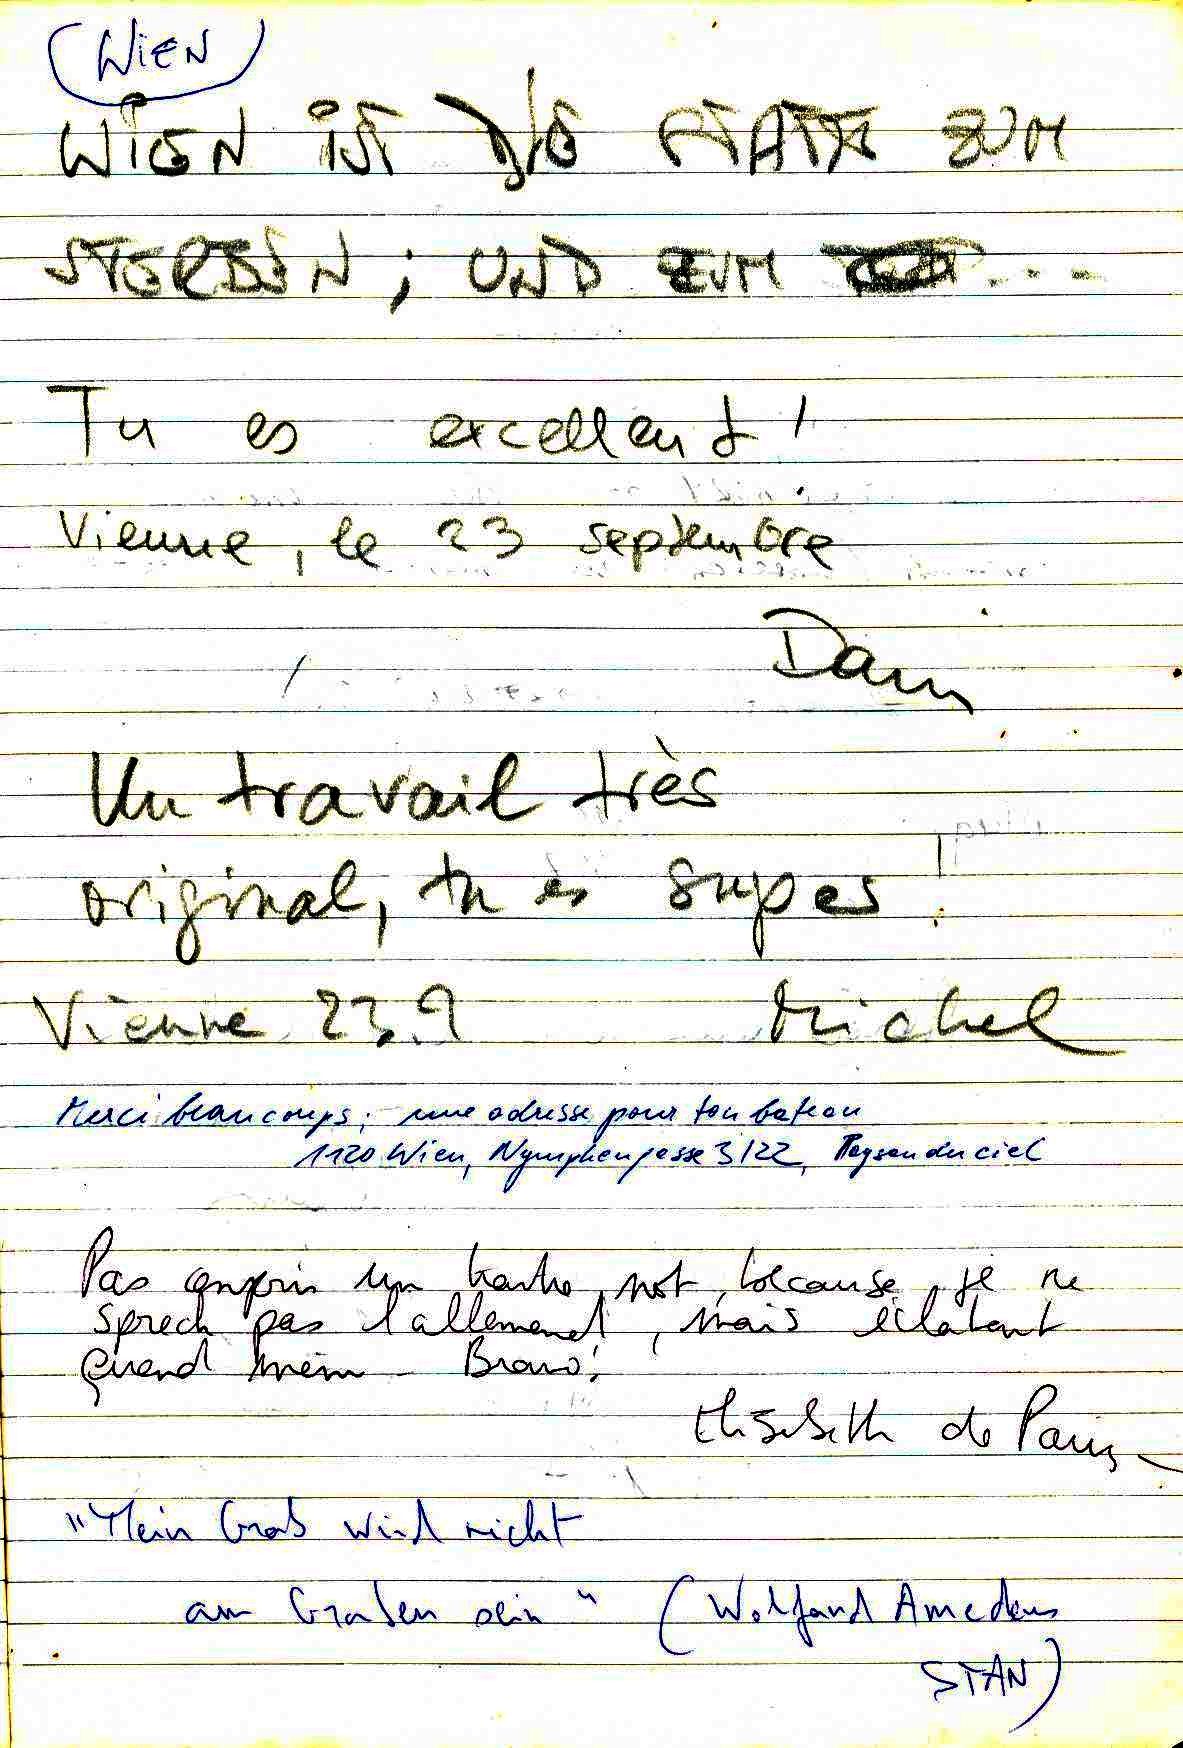 (WIEN)
WIEN IST DIE STÄTTE ZUM
STERBEN; UND ZUM ...
Tu es excellent!
Vienne, le 23 septembre
Un travail très
original, tu es super!
Vienne 23.9 Michel
Merci beaucoups; une adresse pour ton bateau
1120 Wien, Nymphengasse 3/22,
Pas compris un not, because je ne
sprech pas l'allemand, mais éclatant
quand mêm - Bravo!
Elisabeth de Paris
"Mein Grab wird nicht
am Graben sein" (Wolfgand Amedeus
STAN)